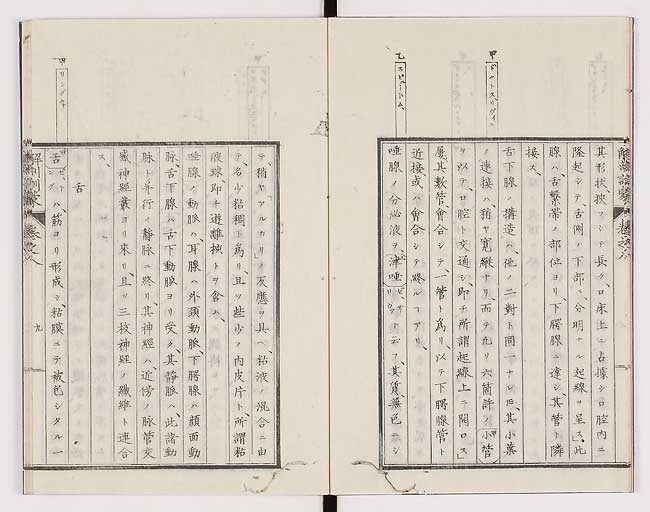 甲
ダクトスリヴィニ
乙
スピットル
其形狀挾フシテ長ク口床上ニ占據シ口腔內ニ
隆起シテ舌側ノ下部ニ分明ナル起線ヲ呈ス此
腺ハ舌繫帶ノ部位ヨリ下腭腺ニ達シ其管ト隣
接ス
舌下腺ノ構造ハ他ノ二對ト同一ナレ𪜈其小葉
ノ連接ハ稍ヤ寬緻ナリ而テ凡リ六箇許ノ小管
ヲ以テ口腔ト交通シ卽チ所謂起線上ニ開口ス
屢其數管會合シテ一管ト爲リ以テ下腭腺管ト
近接或ハ會合シテ終ルヿアリ
唾腺ノ分泌液ヲ津唾ト云フ其質無色ニシ
解剖訓蒙
卷之八
甲
リングキ
テ稍ヤアルカリノ反應ヲ具ヘ粘液ノ混合ニ由
テ多少粘稠ト爲リ且ツ些少ノ內皮片ト所謂粘
液球卽チ遊離核トヲ含ム
唾腺ノ動脈ハ耳腺ハ外頸動脈下腭腺ハ顏面動
脈舌下腺ハ舌下動脈ヨリ受ク其靜脈ハ此諸動
脈ト并行ノ靜脈ニ終リ其神經ハ近傍ノ脈管交
感神經叢ヨリ來リ且ツ三枝神經ノ纖維ト連合
ス
舌
舌ハ筋ヨリ形成シ粘膜ニテ被包シタル一
解剖訓蒙
卷之八
九